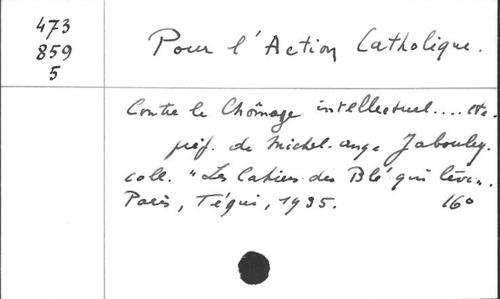 473
859
5
Pour l'Action Catholique.
Contre le Chômage intellectuel.... etc.
préf. de Michel-ange Jabouley.
coll. "Les Cahiers du Blé qui lève".
Paris, Téqui, 1935. 16°